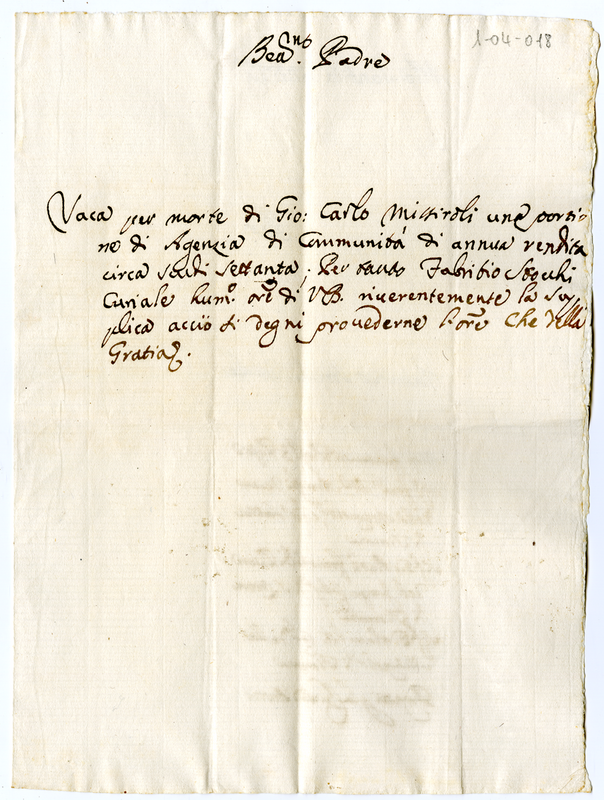 1-04-018
Bea.mo Padre
Vaca per morte di Gio: Carlo Mistiroli una portio
ne di Agenzia di Communità di annua rendita
circa scudi settanta; Per tanto Fabritio Stocchi
Curiale hum.o ore di VB. riverentemente la Sup
plica acciò si degni provederne l'ore Che della
Gratia.